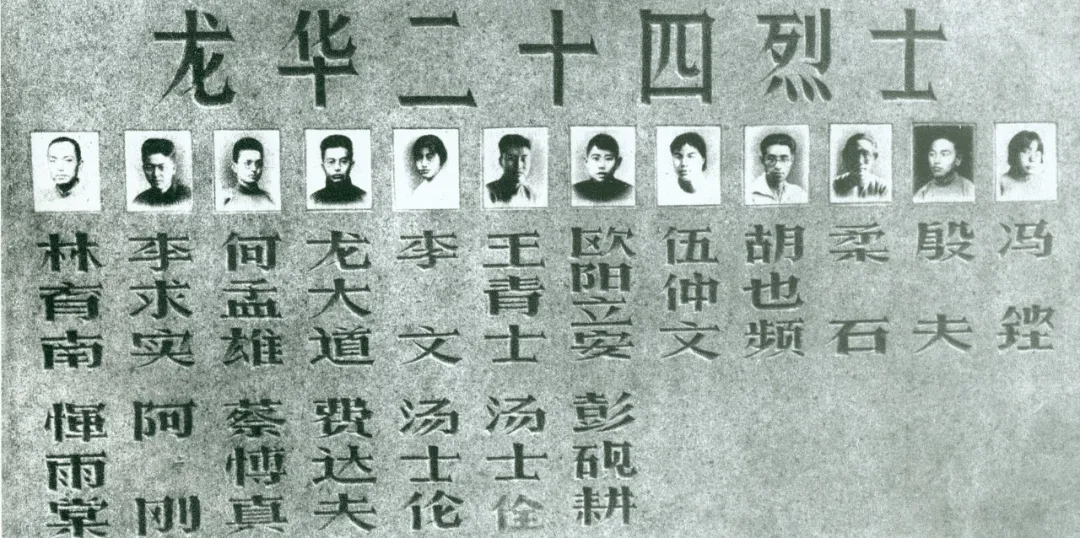 龙华二十四烈士
林育南
李求实
何孟雄
龙大道
李文
王青士
欧阳立安
伍仲文
胡也频
柔石
殷夫
冯铿
恽雨棠
阿刚
蔡博真
费达夫
汤士伦
汤士佺
彭砚耕